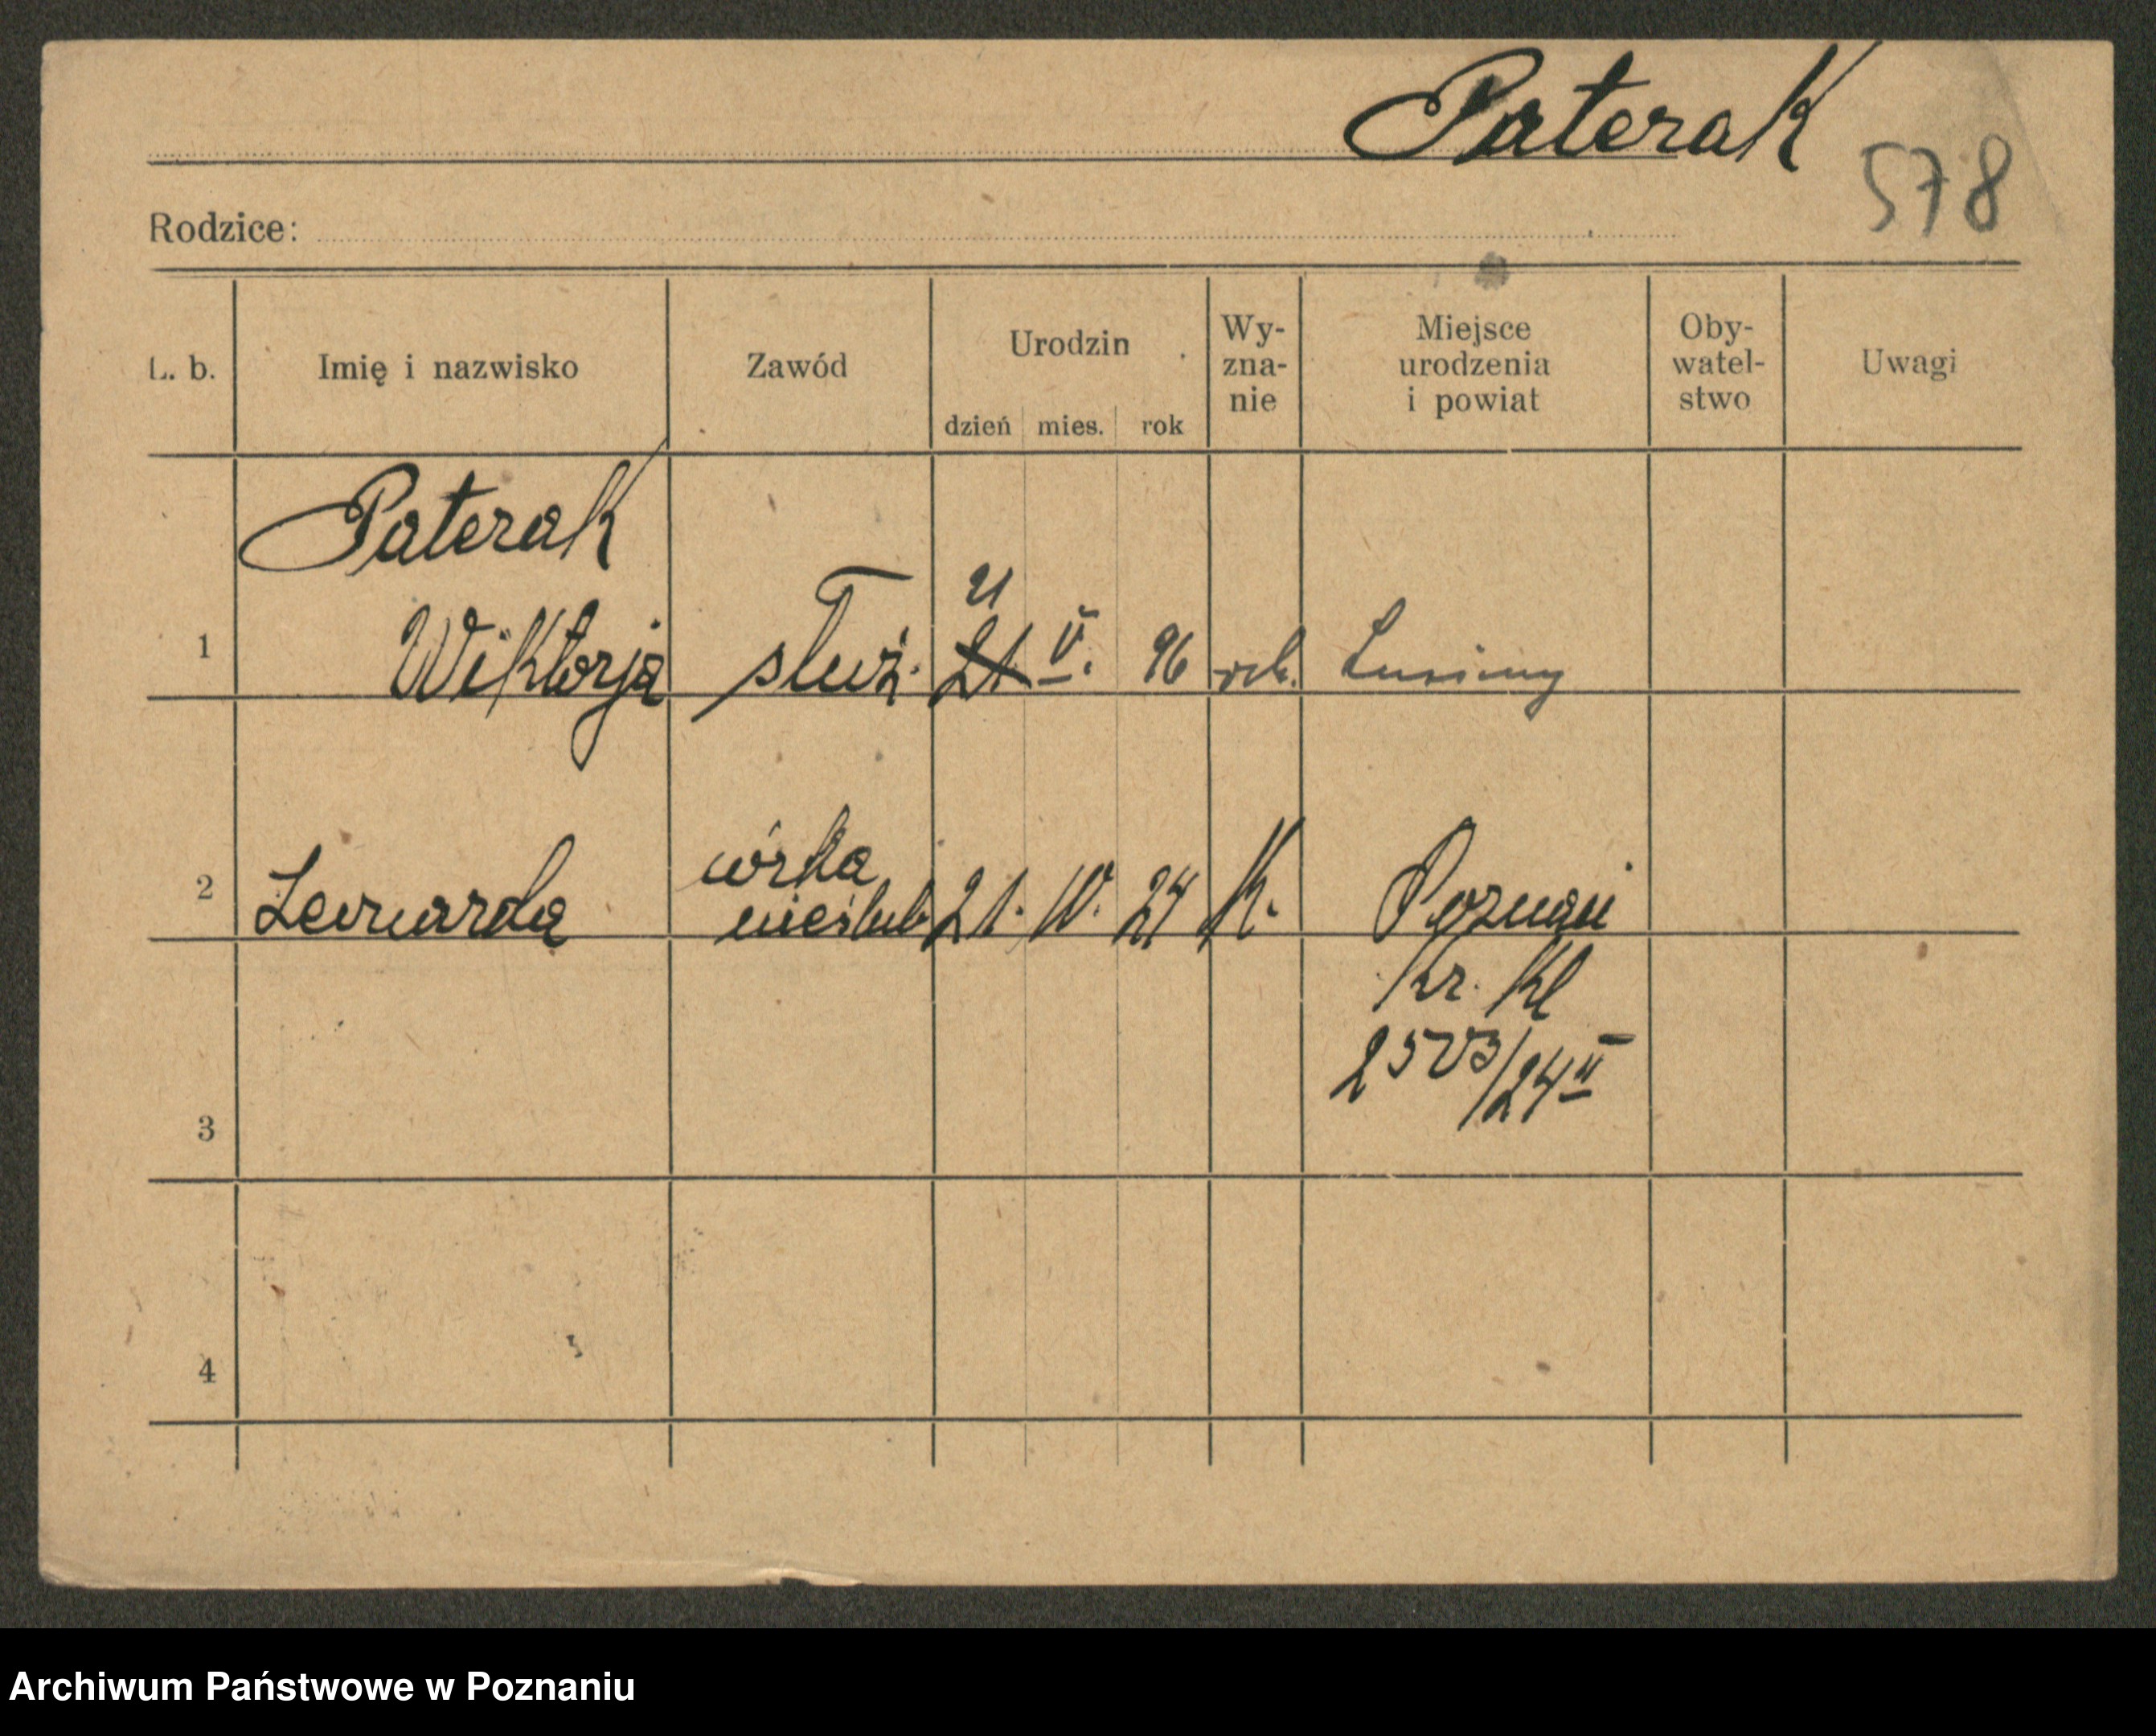 Paterak
578
Rodzice:
L. b.
Imię i nazwisko
Zawód
Urodzin
dzień mies. rok
Wy-
zna-
nie
Miejsce
urodzenia
i powiat
Oby-
watel-
stwo
Uwagi
Paterak
21
1 Wiktorja służ. 21 V. 96 rk.
córka
2 Leonarda nieślub. 21. IV. 24 K. Poznań
Kr. Kl
3
4
Archiwum Państwowe w Poznaniu